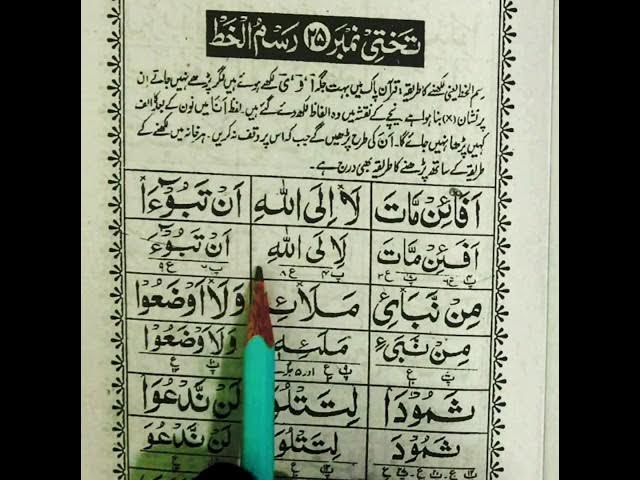 تختی نمبر ۲۵ رسم الخط
رسم الخط یعنی لکھنے کا طریقہ: قرآن پاک میں بہت جگہ آ، و، ی لکھے ہوئے ہیں مگر پڑھے نہیں جاتے ان
پر نشان (×) بنا ہوا ہے نیچے کے نقشہ میں وہ الفاظ لکھ دئے گئے ہیں۔ لفظ اَنَا میں نون کے بعد الف
کہیں پڑھا نہیں جائے گا۔ اَنَ کی طرح پڑھیں گے جب کہ اس پر وقف نہ کریں۔ ہر خانہ میں لکھنے کے
طریقے کے ساتھ پڑھنے کا طریقہ بھی درج ہے۔
اَفَا۟ئِنْ مَّاتَ لَا۟ اِلَى اللّٰهِ اَنْ تَبُوْٓءَا۟
اَفَئِنْ مَّاتَ لَاِلَى اللّٰهِ اَنْ تَبُوْٓءَ
مِنْ نَّبَاِی۟ مَلَا۟ئِ وَلَا۟ اَوْضَعُوْا
مِنْ نَّبَیِٕ مَلَئِهٖ وَلَاَوْضَعُوْا
ثَمُوْدَا۟ لِتَتْلُوَ لَنْ نَّدْعُوَا۟
ثَمُوْدَ لِتَتْلُوَ لَنْ نَّدْعُوَ